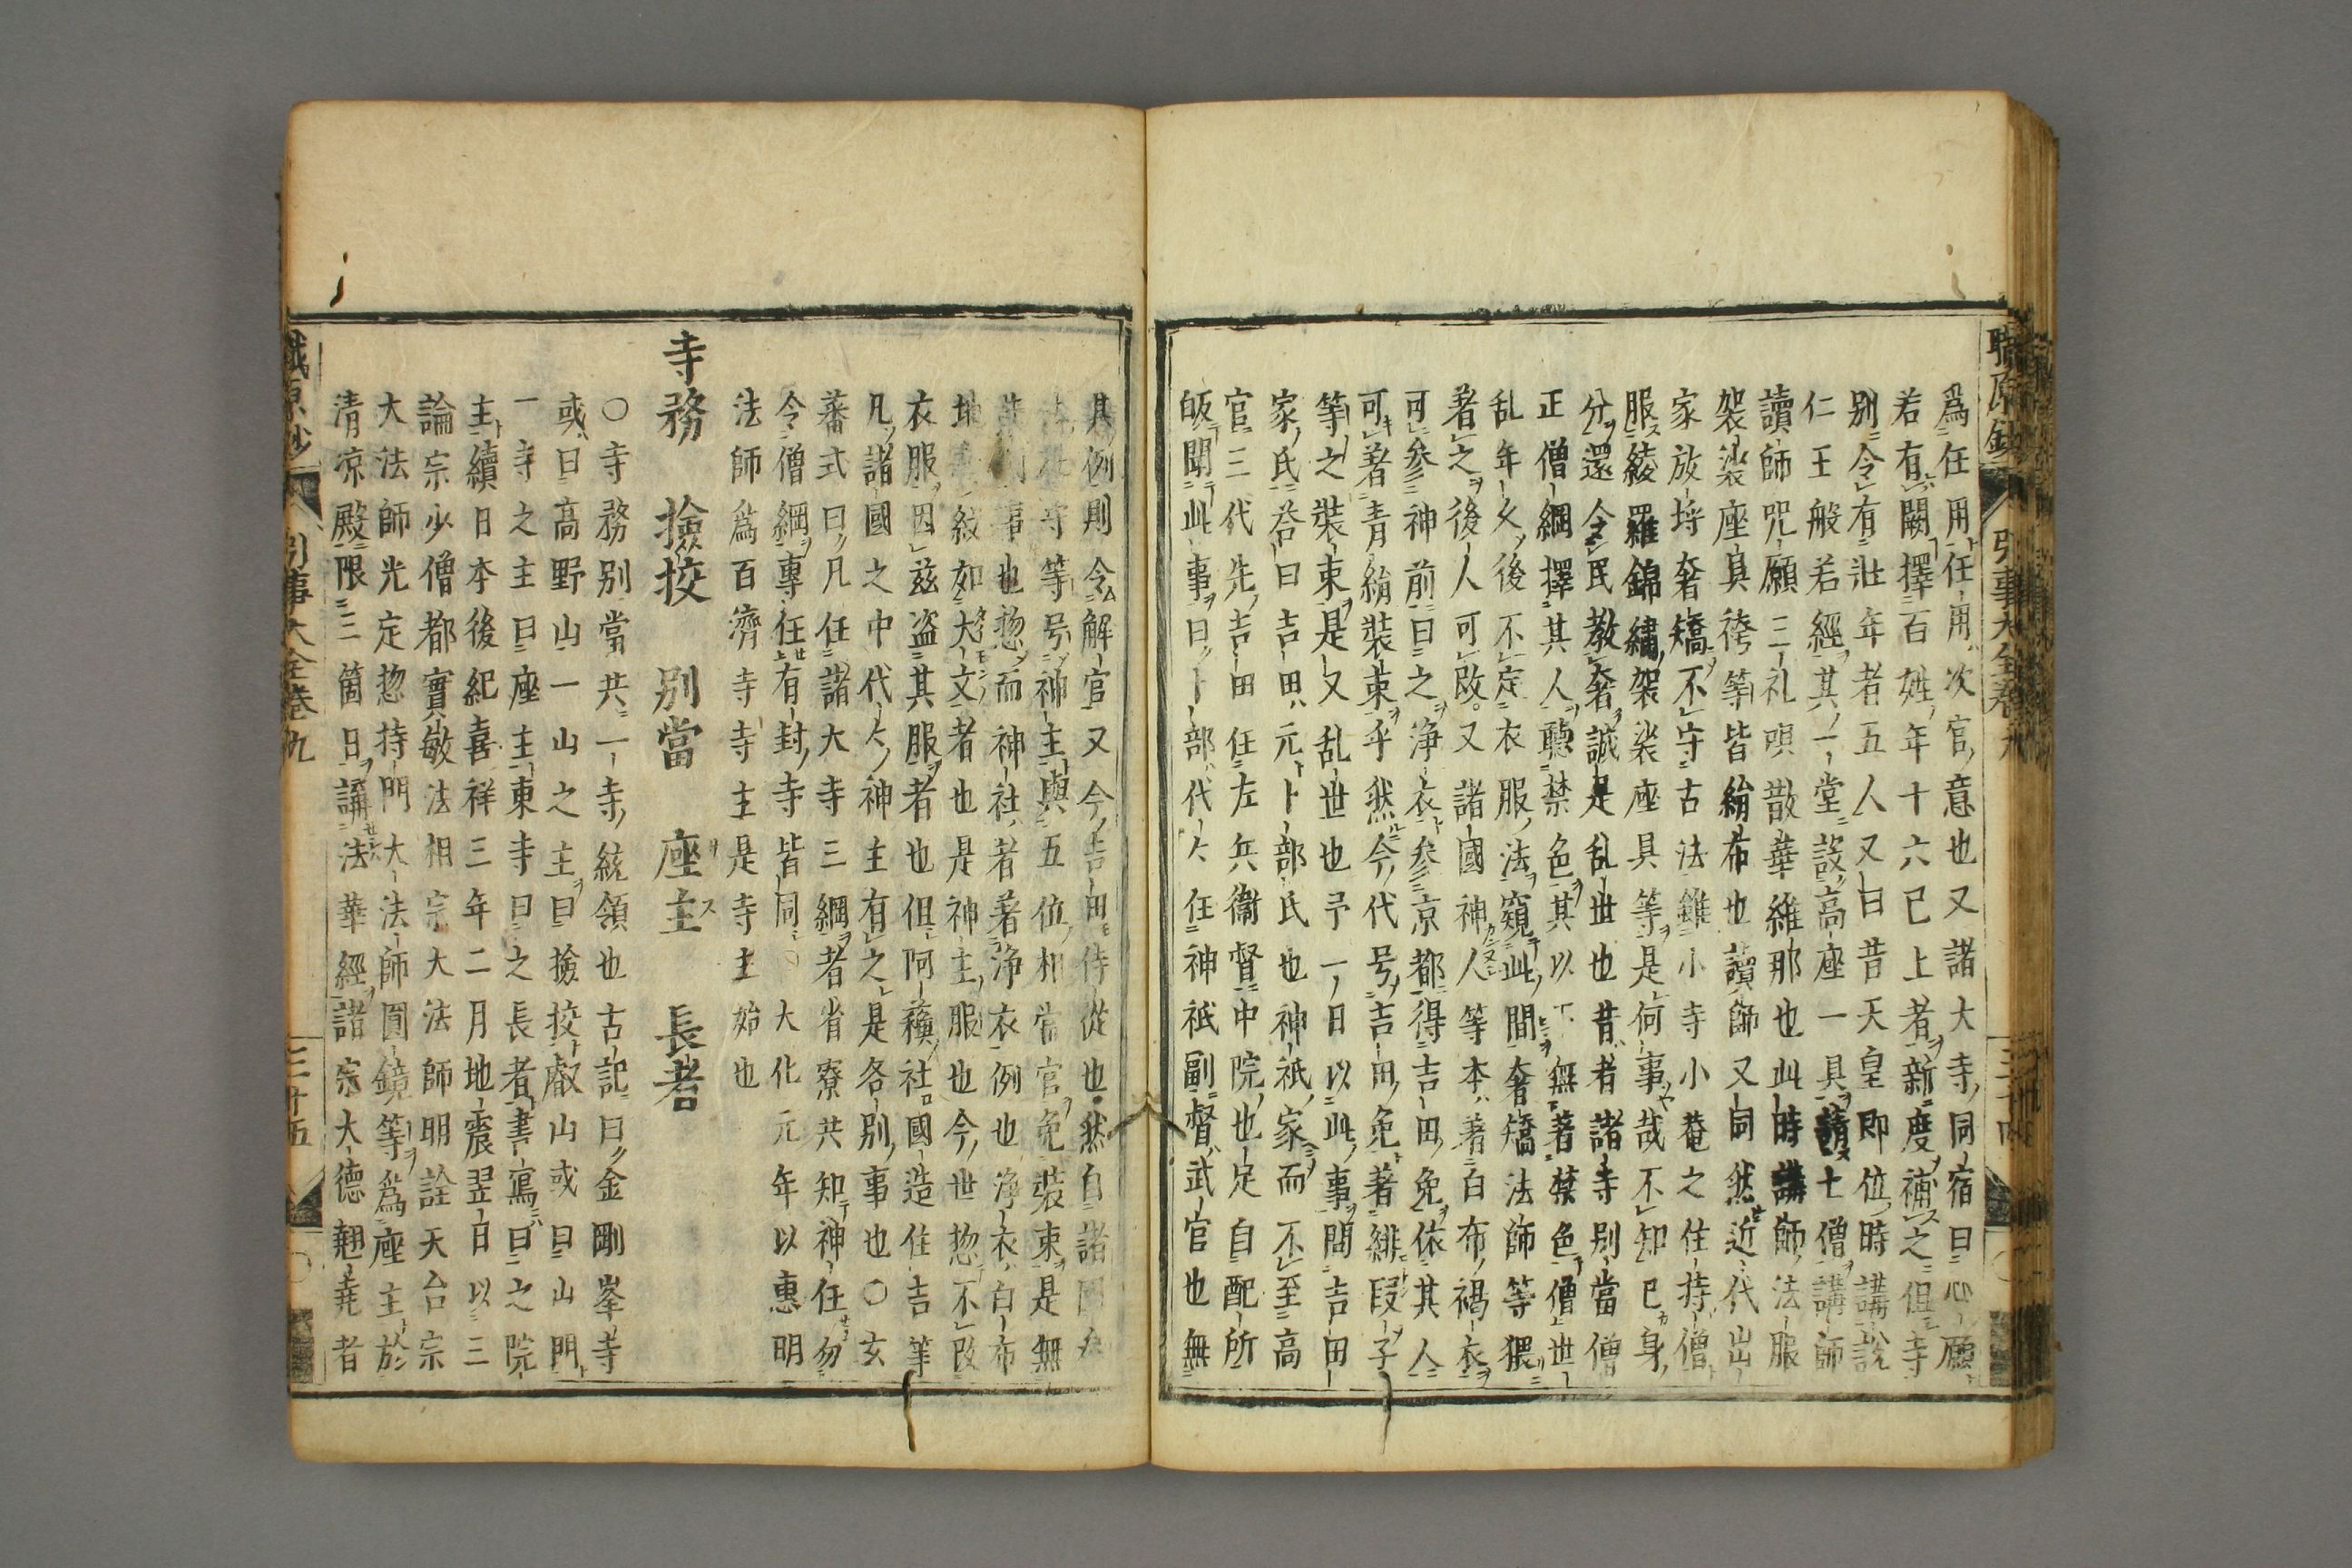 職原鈔 引事大全卷九 三十四
爲任用任用次官意也又諸大寺同宿曰心願
若有闕擇百姓年十六已上者新度補之但寺
別令有壯年者五人又曰昔天皇即位時講説
仁王般若經其一堂設高座一具請七僧講師
讀師呪願三礼唄散華維那也此時講師法服
袈裟座具袴等皆絹布也讀師又同然近代出
家放埓奢矯不守古法雖小寺小菴之住持僧
服綾羅錦繡袈裟座具等是何事哉不知已身
分還令民教奢誠是乱世也昔者諸寺別當僧
正僧綱擇其人聽禁色其以下無著禁色僧世
乱年久後不定衣服法窺此間奢矯法師等猥
著之後人可改又諸國神人等本著白布褐衣
可参神前曰之淨衣参京都得吉田免依其人
可著青絹裝束乎然今代号吉田免著緋段子
等之裝束是又乱世也予一日以此事問吉田
家氏荅曰吉田元卜部氏也神祇家而不至高
官三代先吉田任左兵衞督中院也定自配所
皈聞此事曰卜部代々任神祇副督武官也無
其例則令解官又今吉田侍從也然自諸國
等号神主與五位相當官免裝束是無
事也惣而神社者著淨衣例也淨衣白布
地紋如大文者也是神主服也今世惣不改
衣服因茲盗其服者也但阿蘓社國造住吉等
凡諸國之中代々神主有之是各別事也〇玄
蕃式曰凡任諸大寺三綱者省寮共知神任勿
令僧綱專任有封寺皆同 大化元年以惠明
法師爲百濟寺寺主是寺主始也
寺務 撿挍 別當 座主 長者
〇寺務別當共一寺統領也古記曰金剛峯寺
或曰高野山一山之主曰撿挍叡山或曰山門
一寺之主曰座主東寺曰之長者書寫曰之院
主續日本後紀喜祥三年二月地震翌日以三
論宗少僧都實敏法相宗大法師明詮天台宗
大法師光定惣持門大法師圓鏡等爲座主於
清凉殿限三箇日講法華經諸宗大德翹尭者
職原鈔 引事大全卷九 三十五